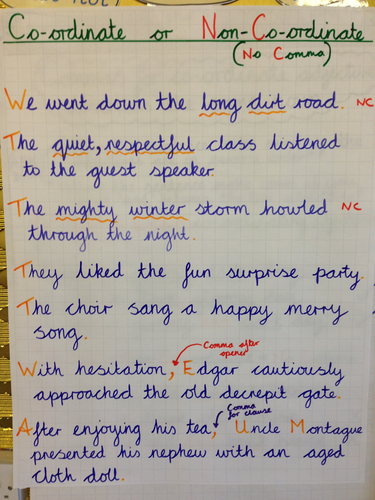 Co-ordinate or Non-Co-ordinate
(No Comma)
We went down the long dirt road. NC
The quiet, respectful class listened
to the guest speaker.
The mighty winter storm howled NC
through the night.
They liked the fun surprise party.
The choir sang a happy merry
song.
Comma after
opener
With hesitation, Edgar cautiously
approached the old decrepit gate.
Comma
for clause
After enjoying his tea, Uncle Montague
presented his nephew with an aged
cloth doll.